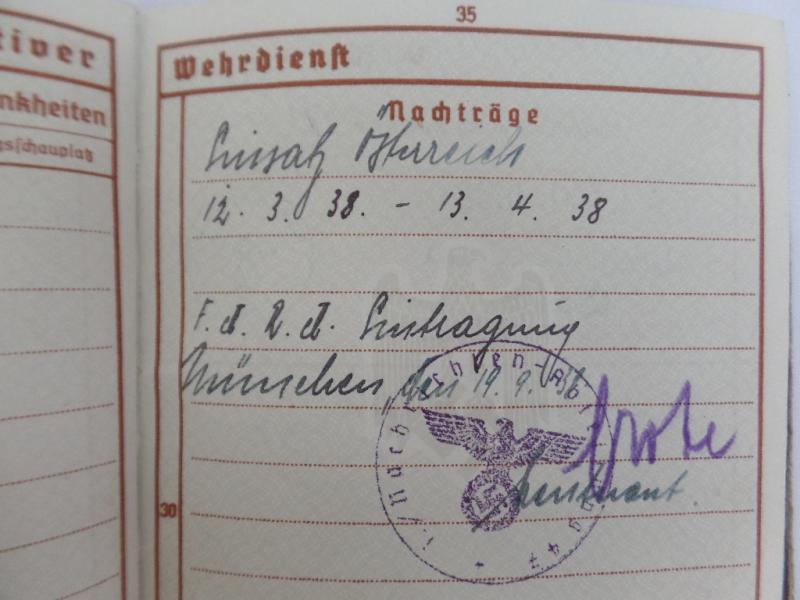 35
tiver
nkheiten
gsschauplatz
Wehrdienst
Nachträge
Einsatz Österreich
12. 3. 38. - 13. 4. 38
F. d. R. d. Eintragung
München, den 19. 9. 38
Leutnant.
30
Nachrichten-Abt
47